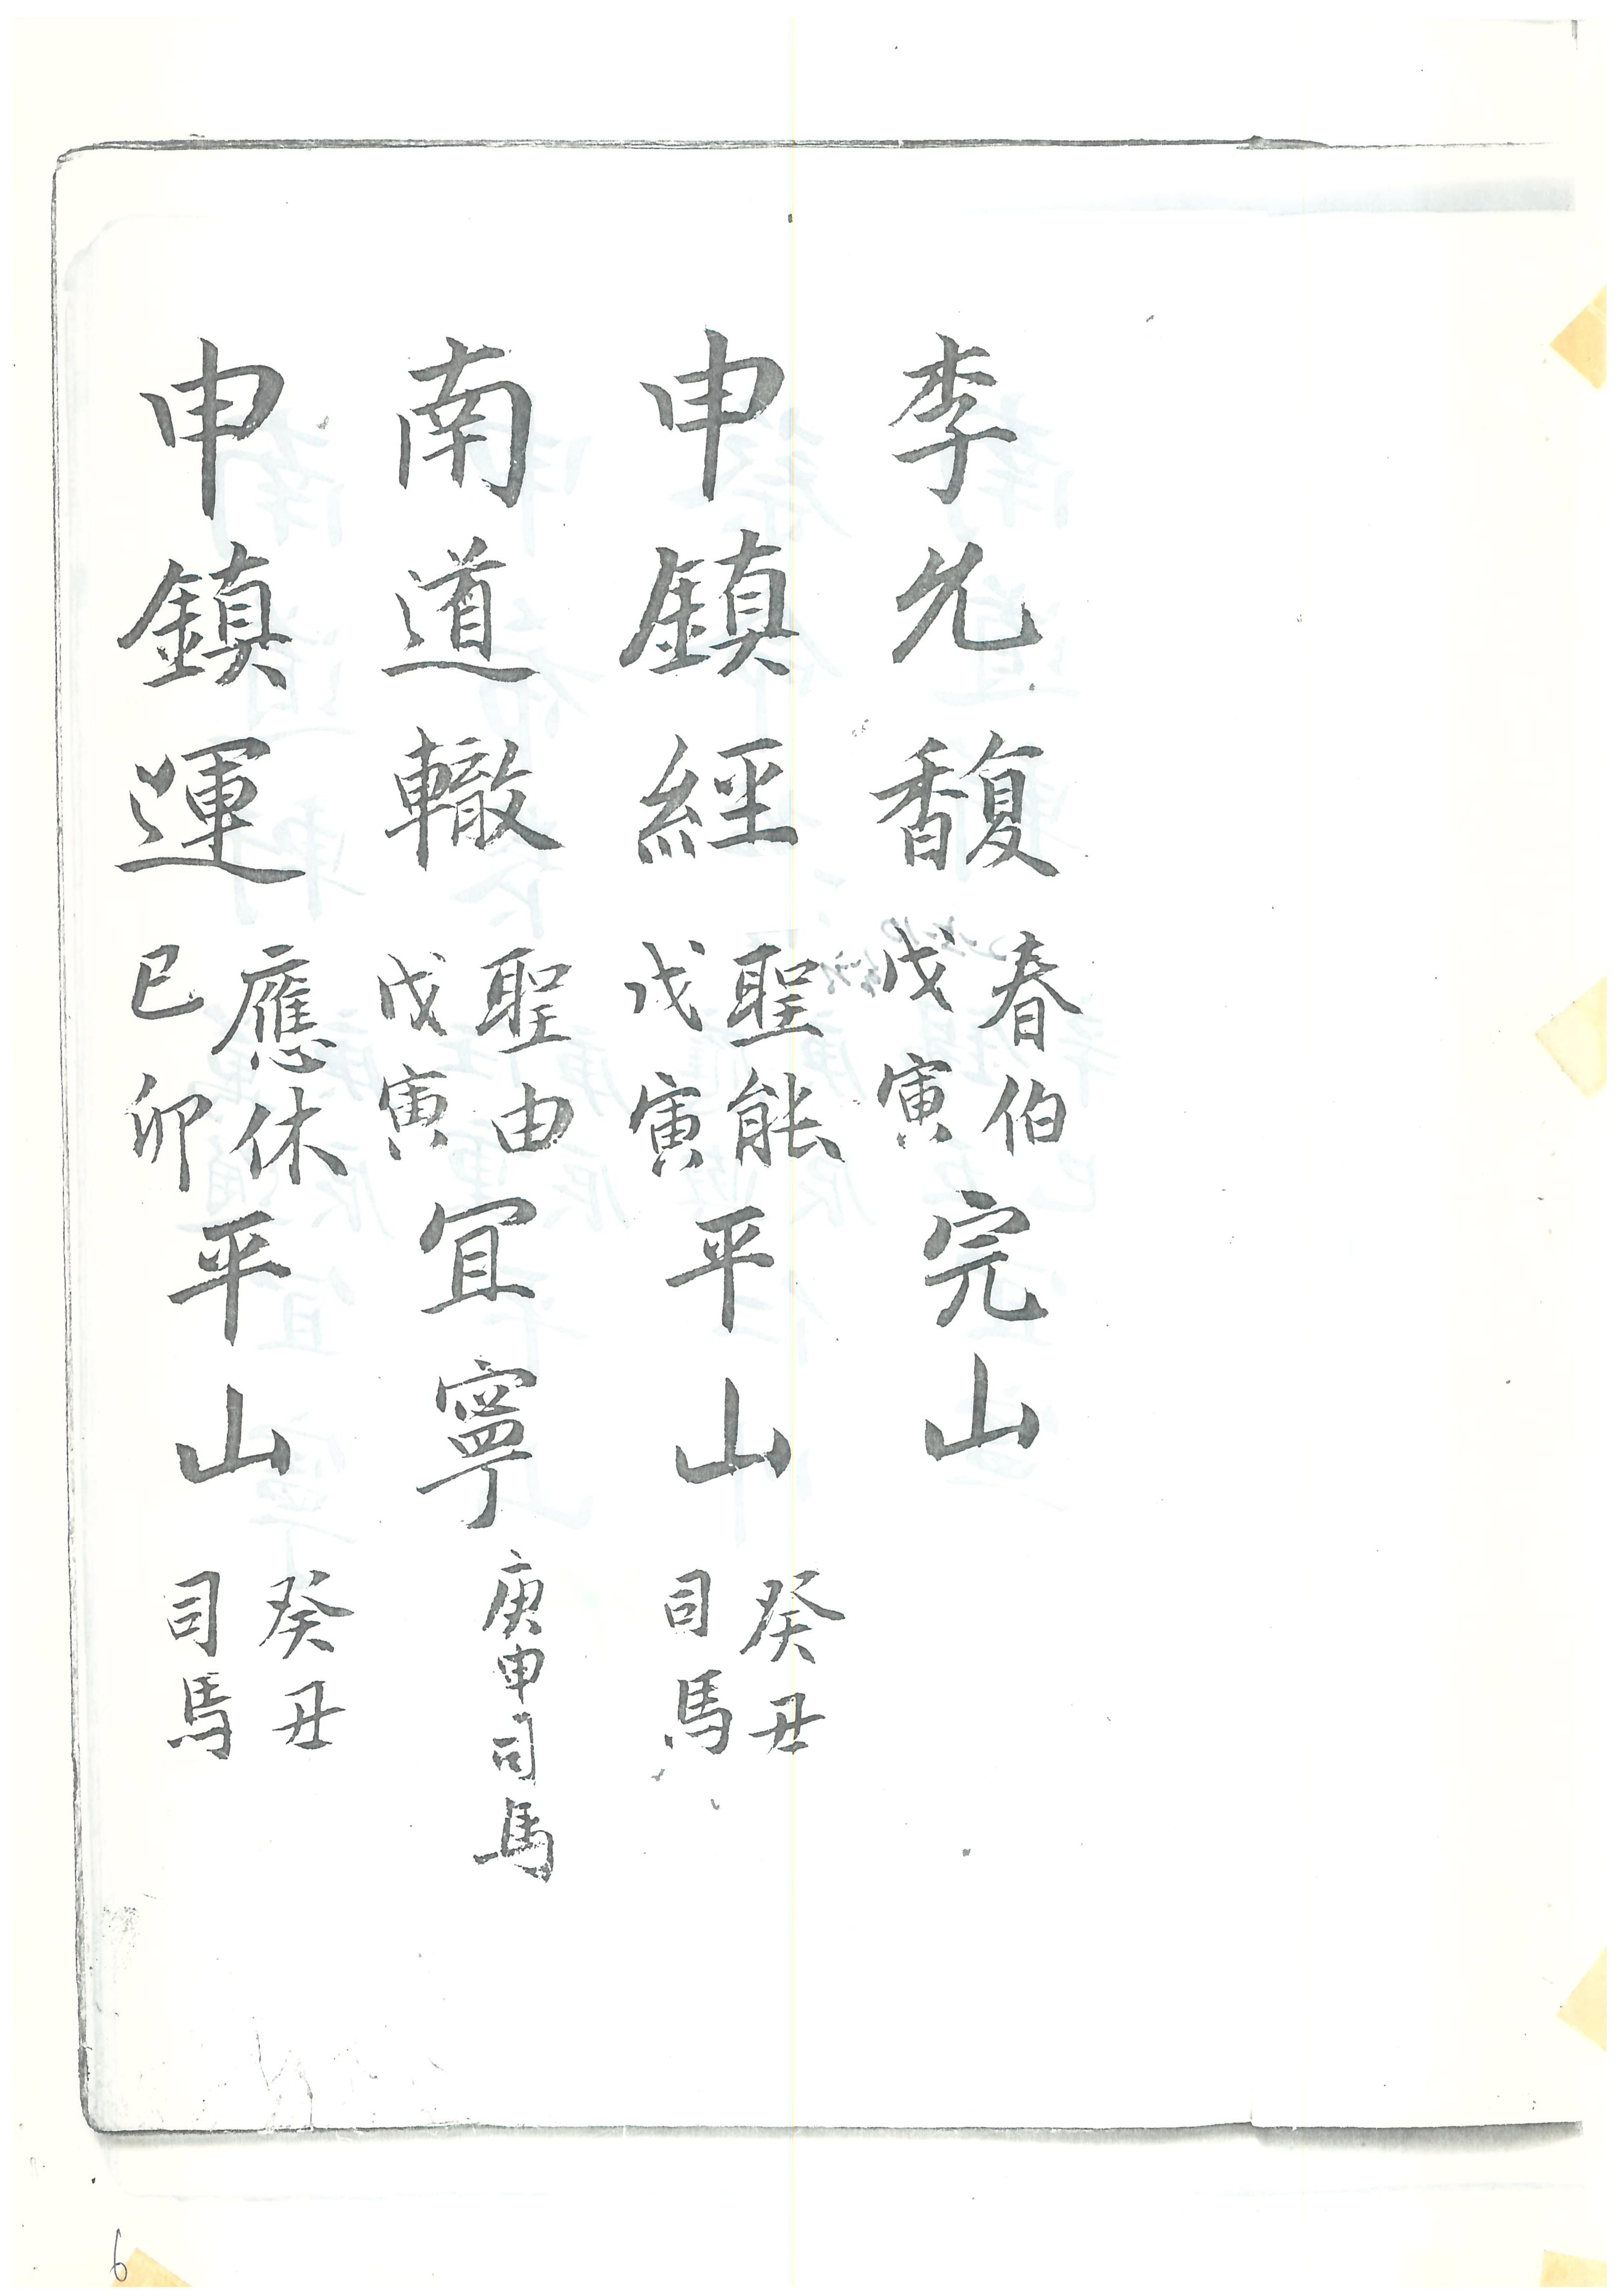 李允馥 春伯 戊寅 完山
申鎮經 聖能 戊寅 平山 癸丑 司馬
南道轍 聖由 戊寅 宜寧 庚申司馬
申鎮運 應休 已卯 平山 癸丑 司馬
6